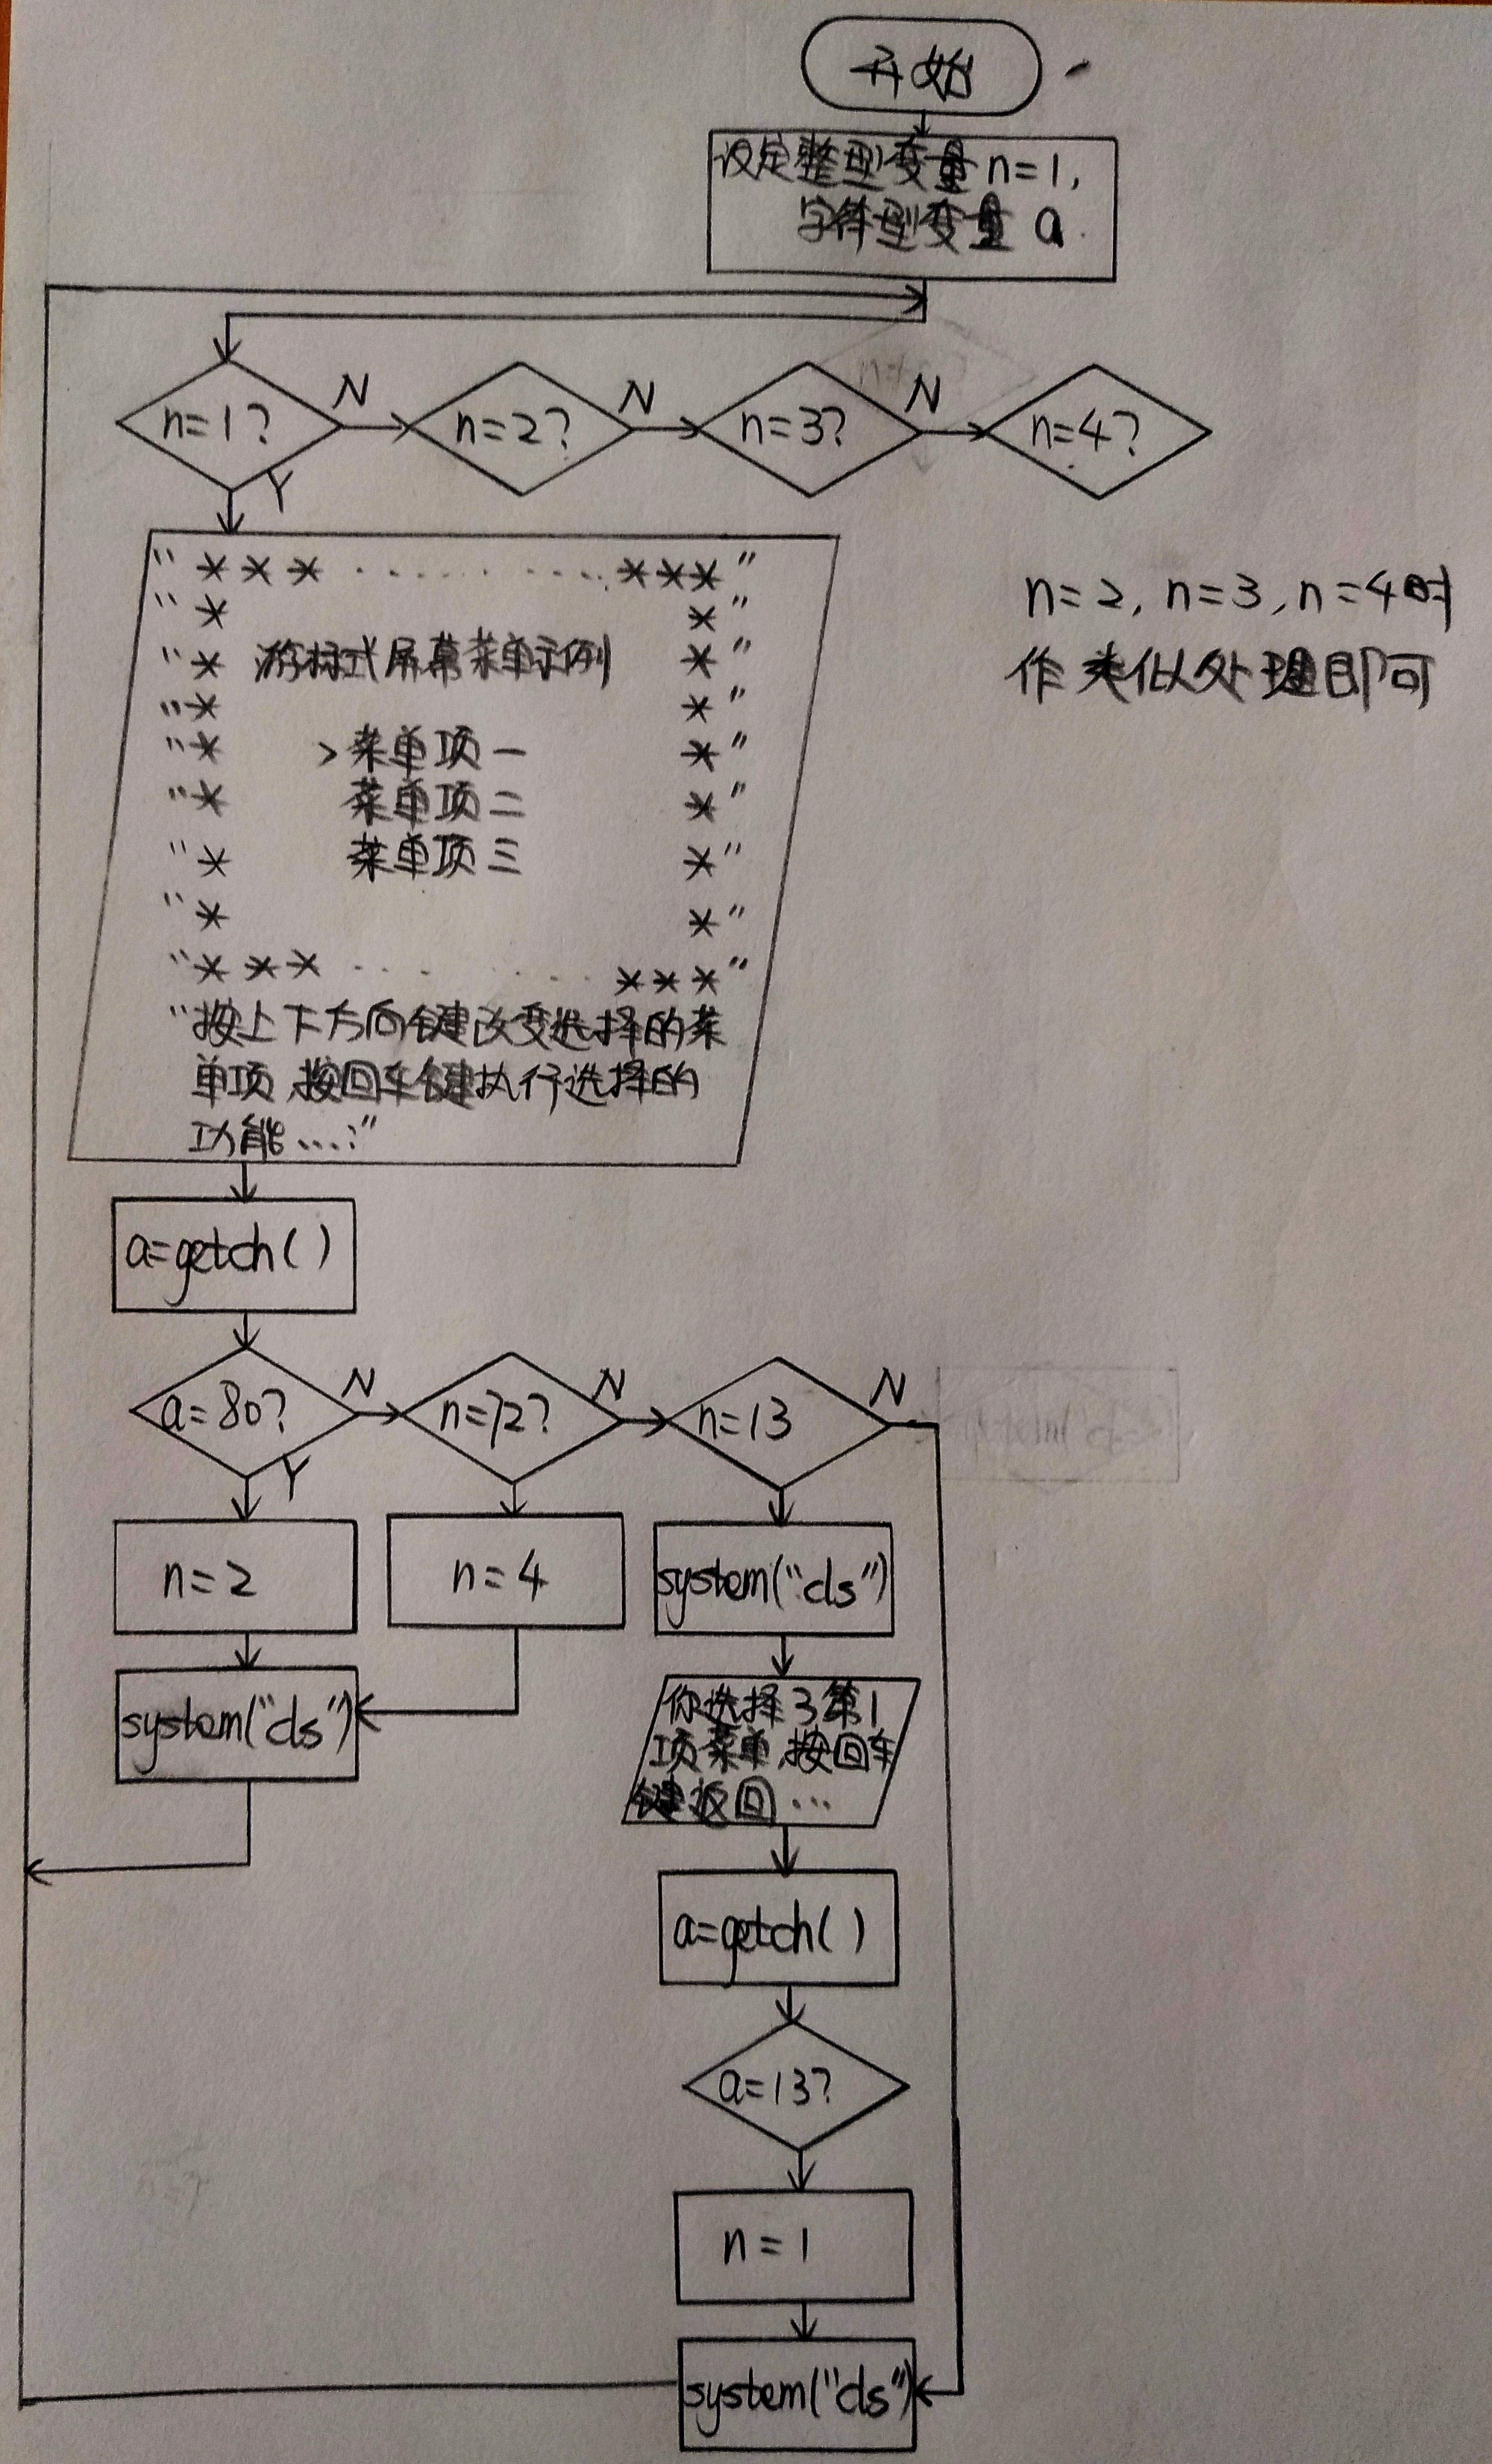 开始
设定整型变量n=1,
字符型变量 a.
n=1?
N
n=2?
N
n=3?
N
n=4?
Y
"*** ............ ***"
"* *"
"* 游标式屏幕菜单示例 *"
"* *"
"* >菜单项一 *"
"* 菜单项二 *"
"* 菜单项三 *"
"* *"
"*** ............ ***"
"按上下方向键改变选择的菜
单项,按回车键执行选择的
功能...:"
n=2, n=3, n=4时
作类似处理即可
a=getch()
a=80?
N
n=72?
N
n=13
N
Y
n=2
n=4
system("cls")
system("cls")
你选择了第1
项菜单,按回车
键返回...
a=getch()
a=13?
n=1
system("cls")